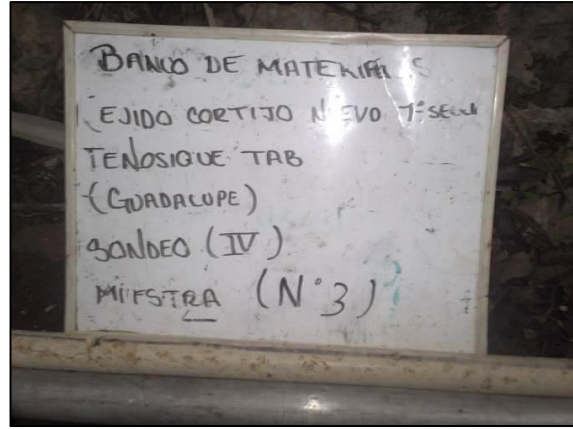 BANCO DE MATERIALES
EJIDO CORTIJO NUEVO 1ª SECC
TENOSIQUE TAB
(GUADALUPE)
SONDEO (IV)
MUESTRA (N°3)